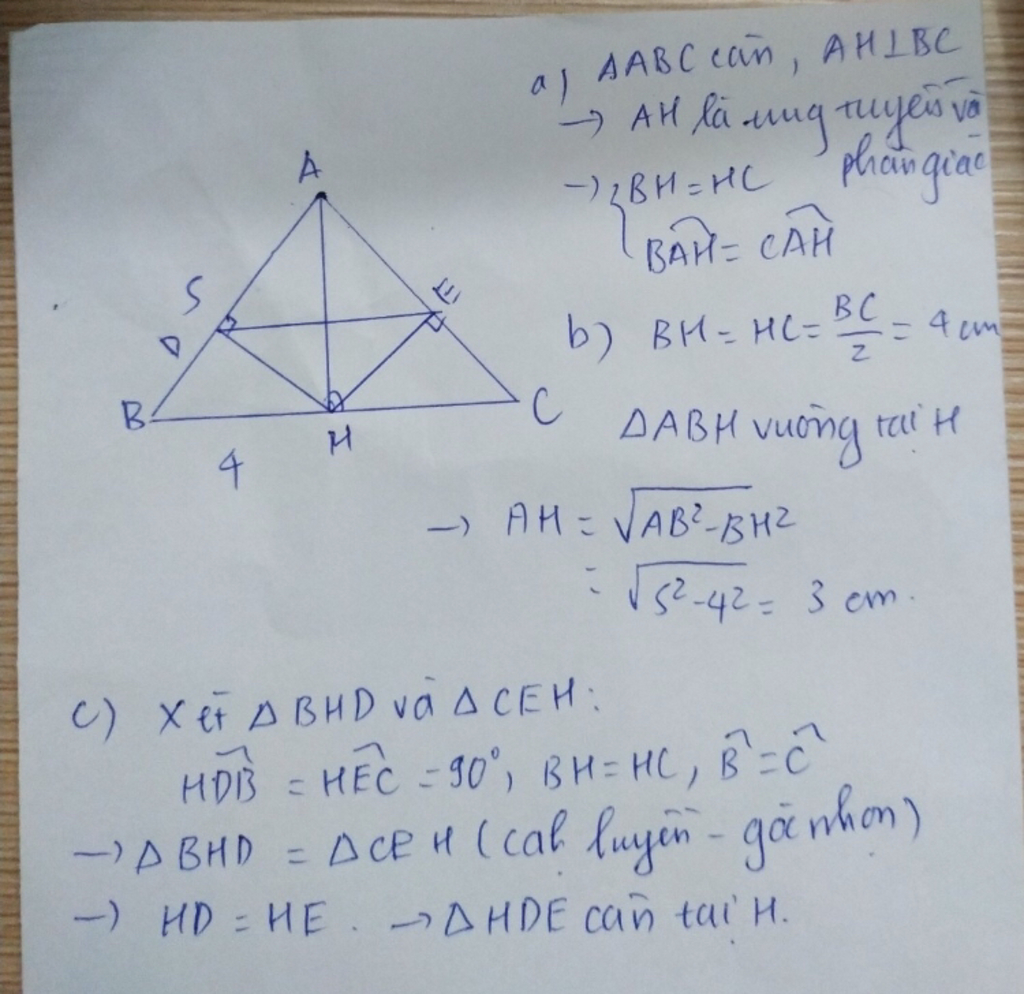 a) ΔABC cân, AH⊥BC
→ AH là trung tuyến và
phân giác
→ { BH = HC
BAH = CAH
A
S
E
D
B
C
H
4
b) BH = HC = BC/2 = 4 cm
ΔABH vuông tại H
→ AH = √AB²-BH²
= √5²-4² = 3 cm.
c) Xét ΔBHD và ΔCEH:
HDB = HEC = 90°, BH = HC, B = C
→ ΔBHD = ΔCEH (cạh huyền - góc nhọn)
→ HD = HE. → ΔHDE cân tại H.